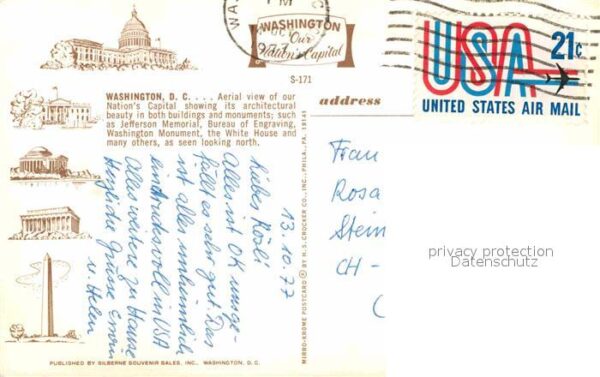 WASHINGTON
Our
Nation's Capital
S-171
WASHINGTON, D. C. . . . . Aerial view of our
Nation's Capital showing its architectural
beauty in both buildings and monuments; such
as Jefferson Memorial, Bureau of Engraving,
Washington Monument, the White House and
many others, as seen looking north.
address
USA 21c
UNITED STATES AIR MAIL
13.10.77
Liebes Rösli
Alles ist OK
fällt es sehr gut. Das
ist alles unheimlich
eindrucksvoll in USA
Alles weitere zu Hause
Herzliche Grüsse Erwin
u. Helen
Frau
Rosa
Stein
CH-
privacy protection
Datenschutz
MIRRO-KROME POSTCARD © BY H. S. CROCKER CO., INC., PHILA., PA. 19141
PUBLISHED BY SILBERNE SOUVENIR SALES, INC., WASHINGTON, D. C.